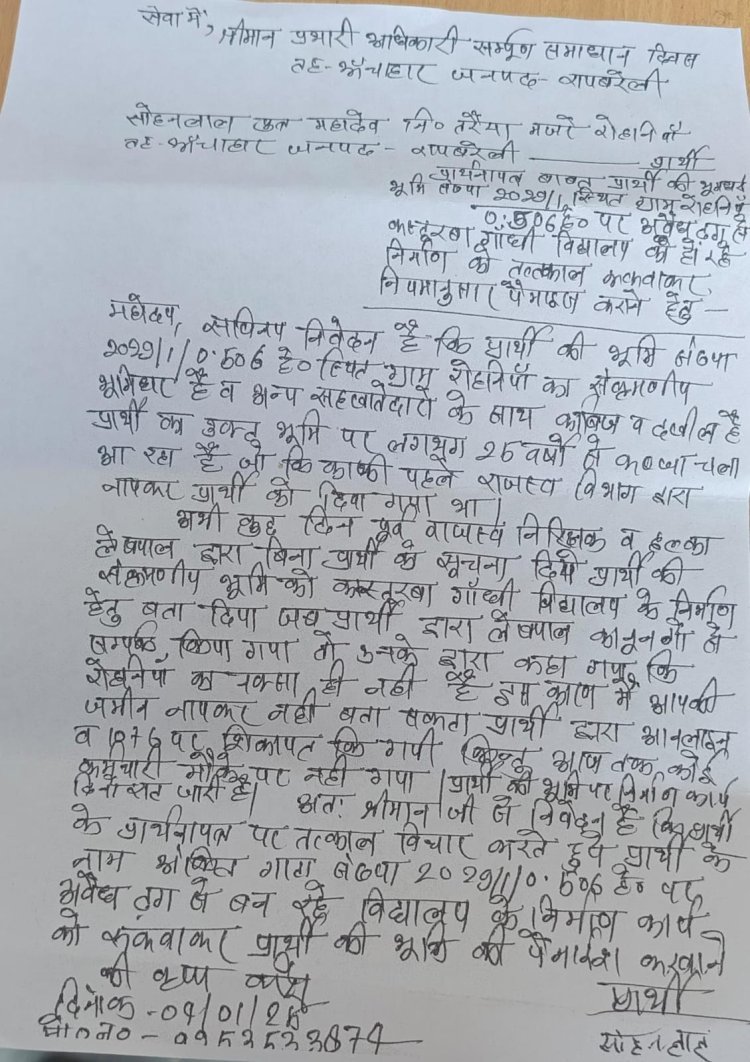 सेवा में,
श्रीमान प्रभारी अधिकारी सम्पूर्ण समाधान दिवस
तह०-ऊँचाहार जनपद- रायबरेली
सोहनलाल पुत्र महादेव नि० तरैया मजरे रोहनियाँ
तह०-ऊँचाहार जनपद- रायबरेली ——— प्रार्थी
प्रार्थनापत्र बाबत प्रार्थी की भूमिधरी
भूमि संख्या 2029/1, स्थित ग्राम रोहनियाँ
0.506 हे० पर अवैध ढंग से
कस्तूरबा गाँधी विद्यालय के हो रहे
निर्माण को तत्काल रूकवाकर,
नियमानुसार पैमाइश कराने हेतु -
महोदय,
सविनय निवेदन है कि प्रार्थी की भूमि संख्या
2029/1/0.506 हे० स्थित ग्राम रोहनियाँ का संक्रमणीय
भूमिधर है व अन्य सहखातेदारो के साथ काबिज व दखील है
प्रार्थी का उक्त भूमि पर लगभग 25 वर्षो से कब्जा चला
आ रहा है जो कि काफी पहले राजस्व विभाग द्वारा
नापकर प्रार्थी को दिया गया था।
अभी कुछ दिन पूर्व राजस्व निरिक्षक व हल्का
लेखपाल द्वारा बिना प्रार्थी के सूचना दिये प्रार्थी की
संक्रमणीय भूमि को कस्तूरबा गाँधी विद्यालय के निर्माण
हेतु बता दिया जब प्रार्थी द्वारा लेखपाल कानूनगो से
सम्पर्क किया गया तो उनके द्वारा कहा गया कि
रोहनियाँ का नक्सा ही नही है इस कारण मै आपकी
जमीन नापकर नही बता सकता प्रार्थी द्वारा आनलाइन
व 1076 पर शिकायत कि गयी किन्तु आज तक कोई
कर्मचारी मौके पर नही गया। प्रार्थी की भूमि पर निर्माण कार्य
दिन रात जारी है। अतः श्रीमान जी से निवेदन है कि प्रार्थी
के प्रार्थनापत्र पर तत्काल विचार करते हुये प्रार्थी के
नाम अंकित गाटा संख्या 2029/1/0.506 हे० पर
अवैध ढंग से बन रहे विद्यालय के निर्माण कार्य
को रूकवाकर प्रार्थी की भूमि की पैमाइश करवाने
की कृपा करें
दिनांक -04/01/26
प्रार्थी
सोहनलाल